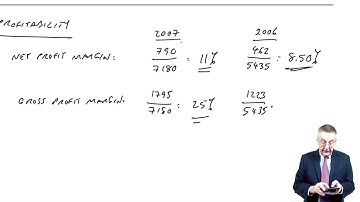 PROFITABILITY
2007 2006
NET PROFIT MARGIN: 790/7180 : 11% 462/5435 = 8.50%
GROSS PROFIT MARGIN. 1795/7180 : 25% 1223/5435 .